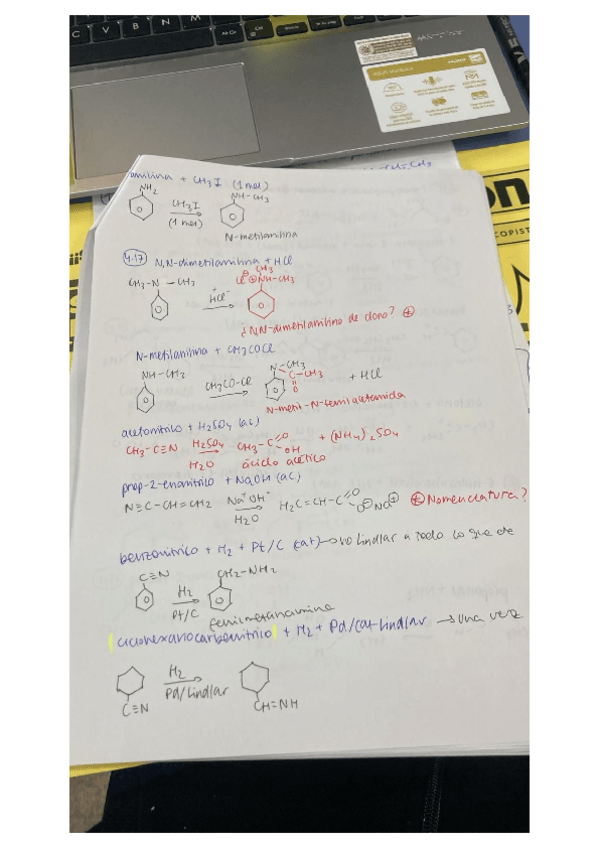 C V B N M
anilina + CH3I (1 mol)
NH2
CH3I
(1 mol)
NH-CH3
N-metilanilina
4.17 N,N-dimetilanilina + HCl
CH3-N-CH3
+ -
HCl
CH3
Cl⊖ ⊕NH-CH3
¿N,N-dimetilanilino de cloro? ⊕
N-metilanilina + CH3COCl
NH-CH3
CH3CO-Cl
N-CH3
C-CH3
O
+ HCl
N-metil-N-fenilacetamida
acetonitrilo + H2SO4 (ac)
CH3-C≡N H2SO4 H2O CH3-C=O OH + (NH4)2SO4
ácido acético
prop-2-enonitrilo + NaOH (ac)
N≡C-CH=CH2 Na+OH- H2O H2C=CH-C=O O⊖Na⊕ ⊕Nomenclatura?
benzonitrilo + H2 + Pt/C (cat) → no lindlar a todo lo que de
C≡N
H2
Pt/C
CH2-NH2
fenilmetanamina
ciclohexanocarbonitrilo + H2 + Pd/cat lindlar → una vez
H2
Pd/lindlar
C≡N
CH=NH
on
COPIST